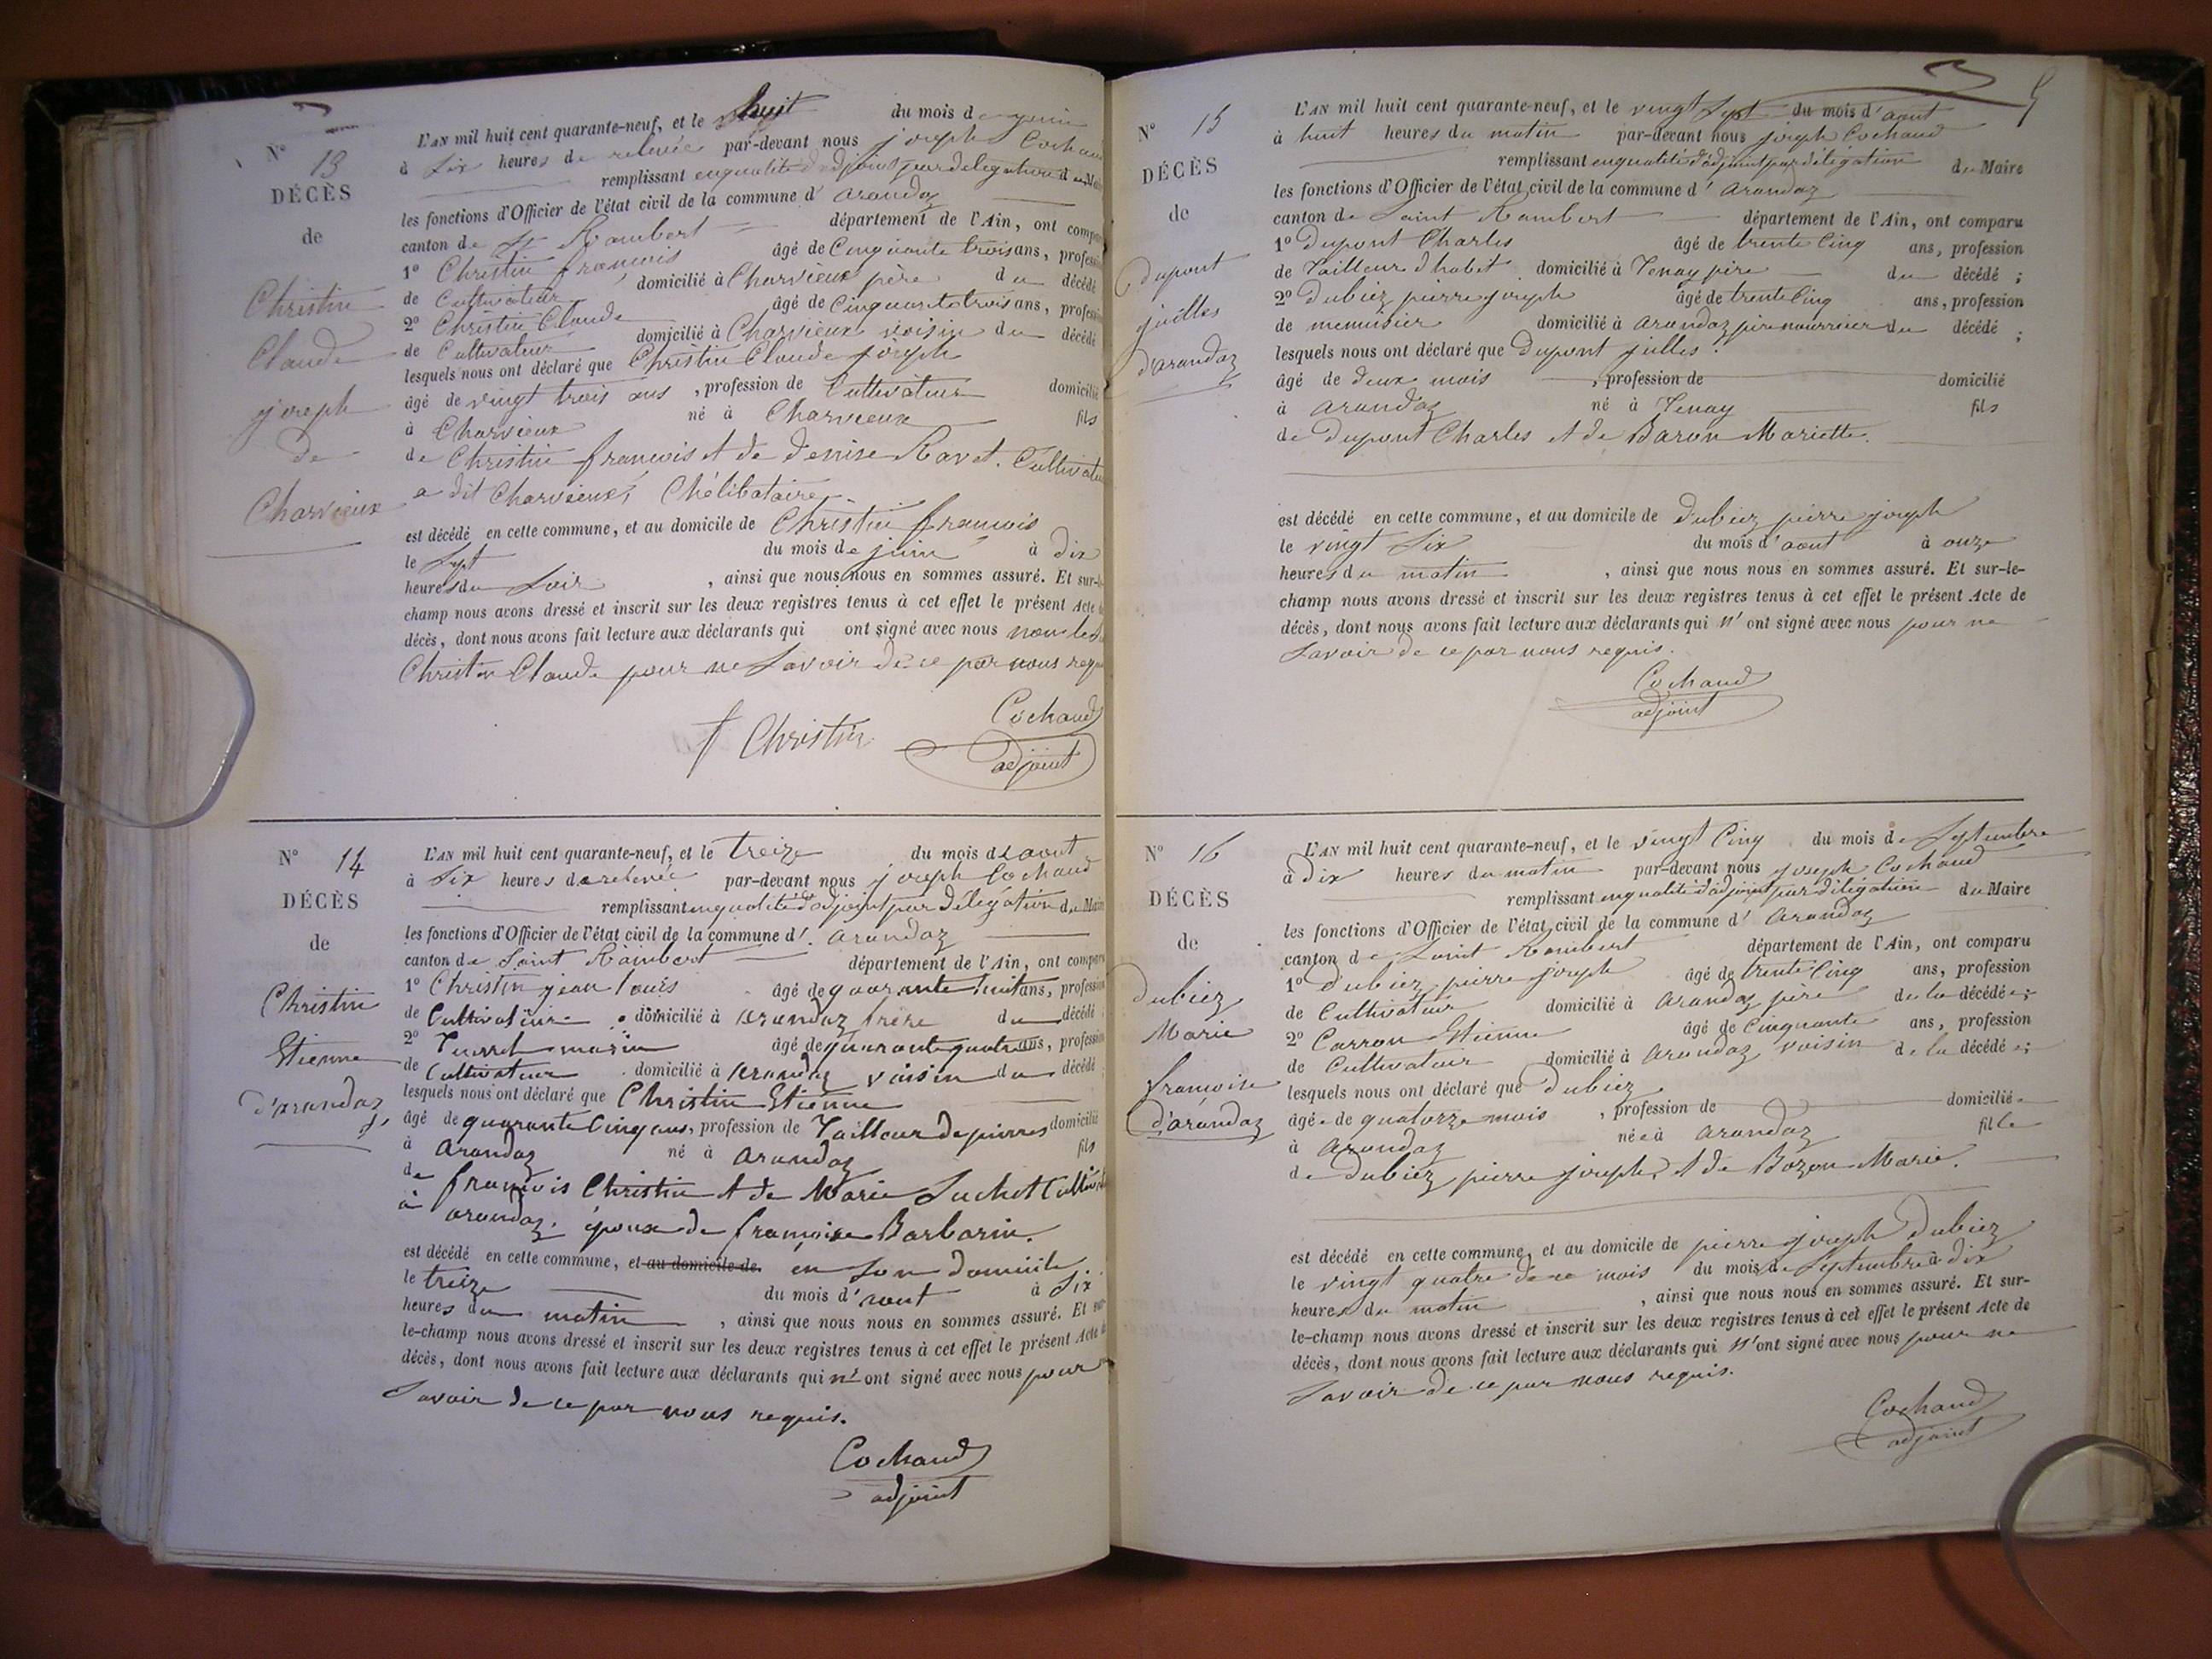 N° 13
DÉCÈS
de
Christin
Claude
joseph
de
Charvieux
L'AN mil huit cent quarante-neuf, et le huit du mois de juin
à Six heures de relevée par-devant nous joseph Cochaud
remplissant enqualité d'adjoint par délégation du Maire
les fonctions d'Officier de l'état civil de la commune d' arandaz
canton de St Rambert département de l'Ain, ont comparu
1° Christin francois âgé de Cinquante trois ans, profession
de Cultivateur domicilié à Charvieux père du décédé
2° Christin Claude âgé de Cinquante trois ans, profession
de Cultivateur domicilié à Charvieux voisin du décédé
lesquels nous ont déclaré que Christin Claude joseph
âgé de vingt trois ans, profession de Cultivateur domicilié
à Charvieux né à Charvieux fils
de Christin francois et de denise Ravet. Cultivateur
a dit Charvieux, Chélibataire
est décédé en cette commune, et au domicile de Christin francois
le Sept du mois de juin à dix
heures du Soir, ainsi que nous nous en sommes assuré. Et sur-le-
champ nous avons dressé et inscrit sur les deux registres tenus à cet effet le présent Acte de
décès, dont nous avons fait lecture aux déclarants qui ont signé avec nous non led
Christin Claude pour ne Savoir de ce par nous requis
f Christin
Cochaud
adjoint
N° 14
DÉCÈS
de
Christin
Etienne
d'arandaz
L'AN mil huit cent quarante-neuf, et le treize du mois d'aout
à Six heures de relevée par-devant nous joseph Cochaud
remplissant enqualité d'adjoint par délégation du Maire
les fonctions d'Officier de l'état civil de la commune d' arandaz
canton de Saint Rambert département de l'Ain, ont comparu
1° Christin jean louis âgé de quarante huit ans, profession
de Cultivateur domicilié à arandaz frère du décédé
2° marin âgé de quarante quatre ans, profession
de Cultivateur domicilié à arandaz voisin du décédé
lesquels nous ont déclaré que Christin Etienne
âgé de quarante Cinq ans, profession de Tailleur de pierres domicilié
à Arandaz né à Arandaz fils
de francois Christin et de Marie Suchet Cultivateur
à arandaz. époux de francoise Barbarin.
est décédé en cette commune, et au domicile de en Son domicile
le treize du mois d'aout à Six
heures du matin, ainsi que nous nous en sommes assuré. Et sur-
le-champ nous avons dressé et inscrit sur les deux registres tenus à cet effet le présent Acte de
décès, dont nous avons fait lecture aux déclarants qui n'ont signé avec nous pour
Savoir de ce par nous requis.
Cochaud
adjoint
5
N° 15
DÉCÈS
de
dupont
juilles
d'arandaz
L'AN mil huit cent quarante-neuf, et le vingt Sept du mois d'aout
à huit heures du matin par-devant nous joseph Cochaud
remplissant enqualité d'adjoint par délégation du Maire
les fonctions d'Officier de l'état civil de la commune d' arandaz
canton de Saint Rambert département de l'Ain, ont comparu
1° dupont Charles âgé de trente Cinq ans, profession
de Tailleur d'habit domicilié à Tenay père du décédé ;
2° dubiez pierre joseph âgé de trente Cinq ans, profession
de menuisier domicilié à arandaz père nourricier du décédé ;
lesquels nous ont déclaré que dupont juilles.
âgé de deux mois, profession de domicilié
à arandaz né à Tenay fils
de dupont Charles et de Baron Mariette.
est décédé en cette commune, et au domicile de dubiez pierre joseph
le vingt Six du mois d'aout à onze
heures du matin, ainsi que nous nous en sommes assuré. Et sur-le-
champ nous avons dressé et inscrit sur les deux registres tenus à cet effet le présent Acte de
décès, dont nous avons fait lecture aux déclarants qui n'ont signé avec nous pour ne
Savoir de ce par nous requis.
Cochaud
adjoint
N° 16
DÉCÈS
de
Dubiez
Marie
francoise
d'arandaz
L'AN mil huit cent quarante-neuf, et le vingt Cinq du mois de Septembre
à dix heures du matin par-devant nous joseph Cochaud
remplissant enqualité d'adjoint par délégation du Maire
les fonctions d'Officier de l'état civil de la commune d' Arandaz
canton de Saint Rambert département de l'Ain, ont comparu
1° dubiez pierre joseph âgé de trente Cinq ans, profession
de Cultivateur domicilié à Arandaz père de la décédée ;
2° Carron Etienne âgé de Cinquante ans, profession
de Cultivateur domicilié à Arandaz voisin de la décédée ;
lesquels nous ont déclaré que Dubiez
âgée de quatorze mois, profession de domiciliée
à Arandaz née à Arandaz fille
de dubiez pierre joseph et de Bozon Marie.
est décédé en cette commune, et au domicile de pierre joseph dubiez
le vingt quatre de ce mois du mois de Septembre à dix
heures du matin, ainsi que nous nous en sommes assuré. Et sur-
le-champ nous avons dressé et inscrit sur les deux registres tenus à cet effet le présent Acte de
décès, dont nous avons fait lecture aux déclarants qui n'ont signé avec nous pour ne
Savoir de ce par nous requis.
Cochaud
adjoint